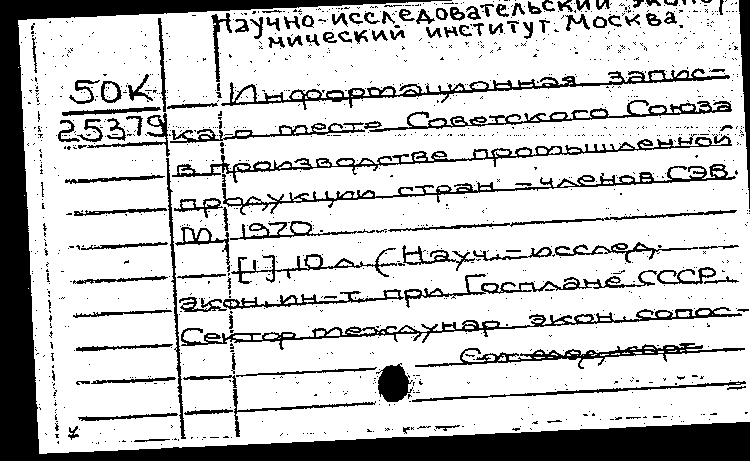 Научно-исследовательский эконо
мический институт. Москва.
50К
25379
Информационная запис=
ка о месте Советского Союза
в производстве промышленной
продукции стран - членов СЭВ.
М. 1970.
[1], 10 л. (Науч.-исслед.
экон. ин-т при Госплане СССР.
Сектор междунар. экон. сопос-
См. след. карт
к